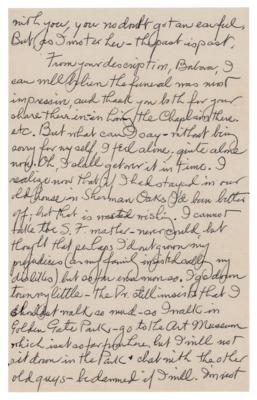 with you, you no doubt got an earful.
But as I wrote her - the past is past.
From your description, Barbara, I
can well believe the funeral was most
impressive, and thank you both for your
share therein - in having the Chaplain there
etc. But what can I say - without being
sorry for myself, I feel alone. quite alone
now. Oh, I shall get over it in time. I
realize now that if I had stayed in our
old house in Sherman Oaks I'd be better
off, but that is wishin. I cannot
take the S.F. weather - never could but
thought that perhaps I'd outgrown my
prejudices (as my family
dislikes) but so far even more so. I go down
town very little - the Dr. still insists that I
should walk so much - so I walk in
Golden Gate Park - go to the Art Museum
which isn't so far from here, but I will not
sit down in the Park & chat with the other
old guys - be damned if I will. I'm not